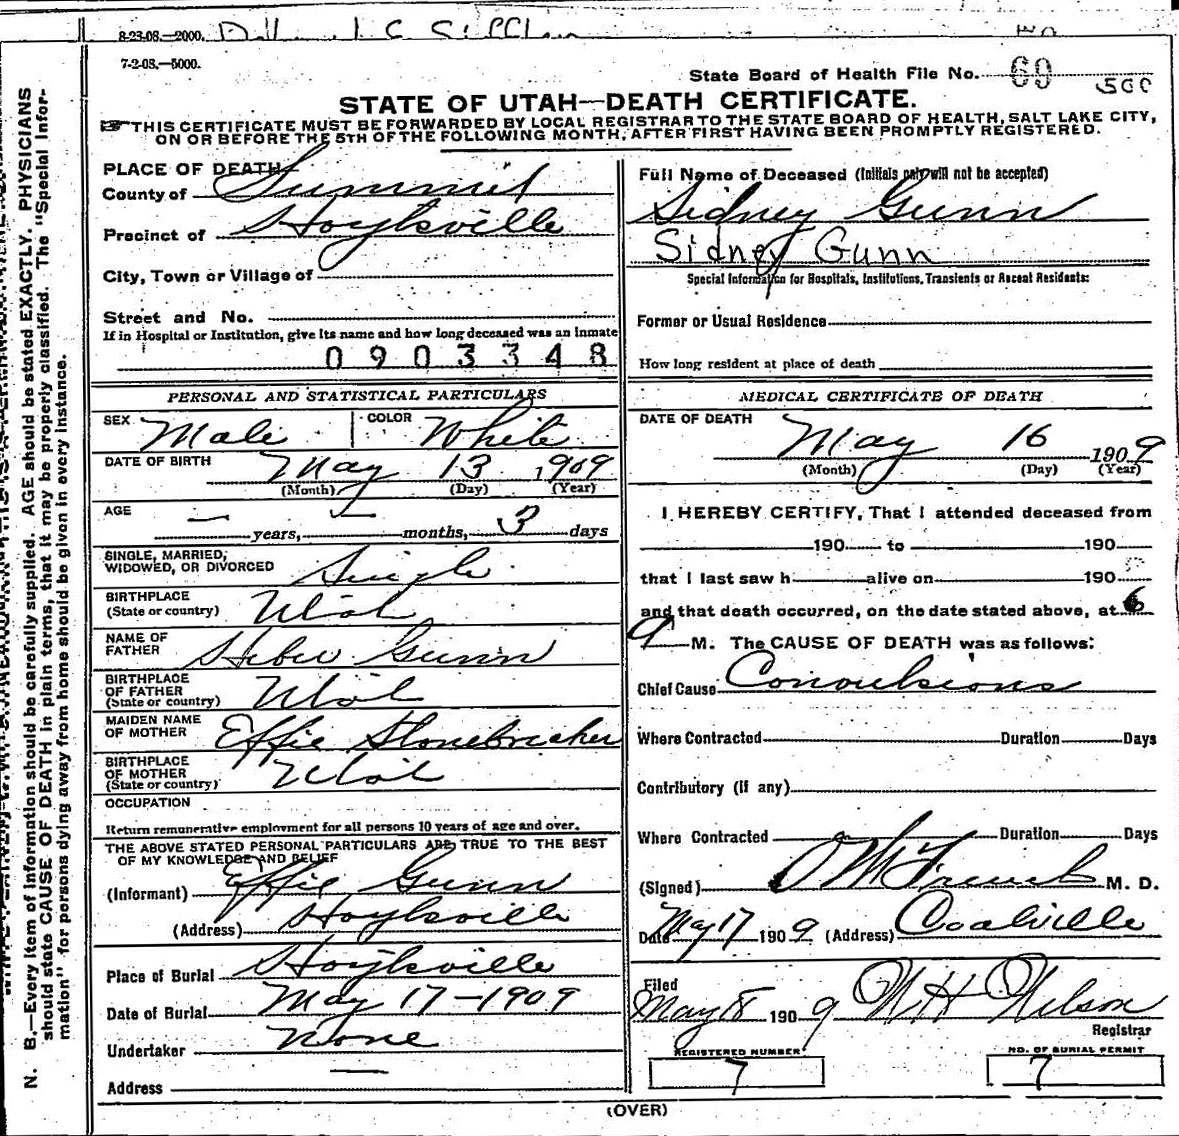 8-23-08.—2000.
7-2-08.—5000.
State Board of Health File No. 69
500
STATE OF UTAH—DEATH CERTIFICATE.
THIS CERTIFICATE MUST BE FORWARDED BY LOCAL REGISTRAR TO THE STATE BOARD OF HEALTH, SALT LAKE CITY,
ON OR BEFORE THE 5TH OF THE FOLLOWING MONTH, AFTER FIRST HAVING BEEN PROMPTLY REGISTERED.
PLACE OF DEATH
County of Summit
Precinct of Hoytsville
City, Town or Village of
Street and No.
If in Hospital or Institution, give its name and how long deceased was an inmate
0903348
PERSONAL AND STATISTICAL PARTICULARS
SEX Male COLOR White
DATE OF BIRTH May 13 1909
(Month) (Day) (Year)
AGE
— years, — months, 3 days
SINGLE, MARRIED,
WIDOWED, OR DIVORCED Single
BIRTHPLACE
(State or country) Utah
NAME OF
FATHER Heber Gunn
BIRTHPLACE
OF FATHER
(State or country) Utah
MAIDEN NAME
OF MOTHER Effie Stonebreaker
BIRTHPLACE
OF MOTHER
(State or country) Utah
OCCUPATION
Return remunerative employment for all persons 10 years of age and over.
THE ABOVE STATED PERSONAL PARTICULARS ARE TRUE TO THE BEST
OF MY KNOWLEDGE AND BELIEF
(Informant) Effie Gunn
(Address) Hoytsville
Place of Burial Hoytsville
Date of Burial May 17-1909
Undertaker None
Address —
Full Name of Deceased (Initials only will not be accepted)
Sidney Gunn
Sidney Gunn
Special Information for Hospitals, Institutions, Transients or Recent Residents:
Former or Usual Residence
How long resident at place of death
MEDICAL CERTIFICATE OF DEATH
DATE OF DEATH
May 16 1909
(Month) (Day) (Year)
I HEREBY CERTIFY, That I attended deceased from
190 to 190
that I last saw h alive on 190
and that death occurred, on the date stated above, at 6
a M. The CAUSE OF DEATH was as follows:
Chief Cause Convulsions
Where Contracted Duration Days
Contributory (if any)
Where Contracted Duration Days
(Signed) M. D.
Date May 17 1909 (Address) Coalville
Filed
May 18 1909 W H Wilson
Registrar
REGISTERED NUMBER
7
NO. OF BURIAL PERMIT
7
(OVER)
N. B.—Every item of information should be carefully supplied. AGE should be stated EXACTLY. PHYSICIANS
should state CAUSE OF DEATH in plain terms, that it may be properly classified. The "Special Infor-
mation" for persons dying away from home should be given in every instance.